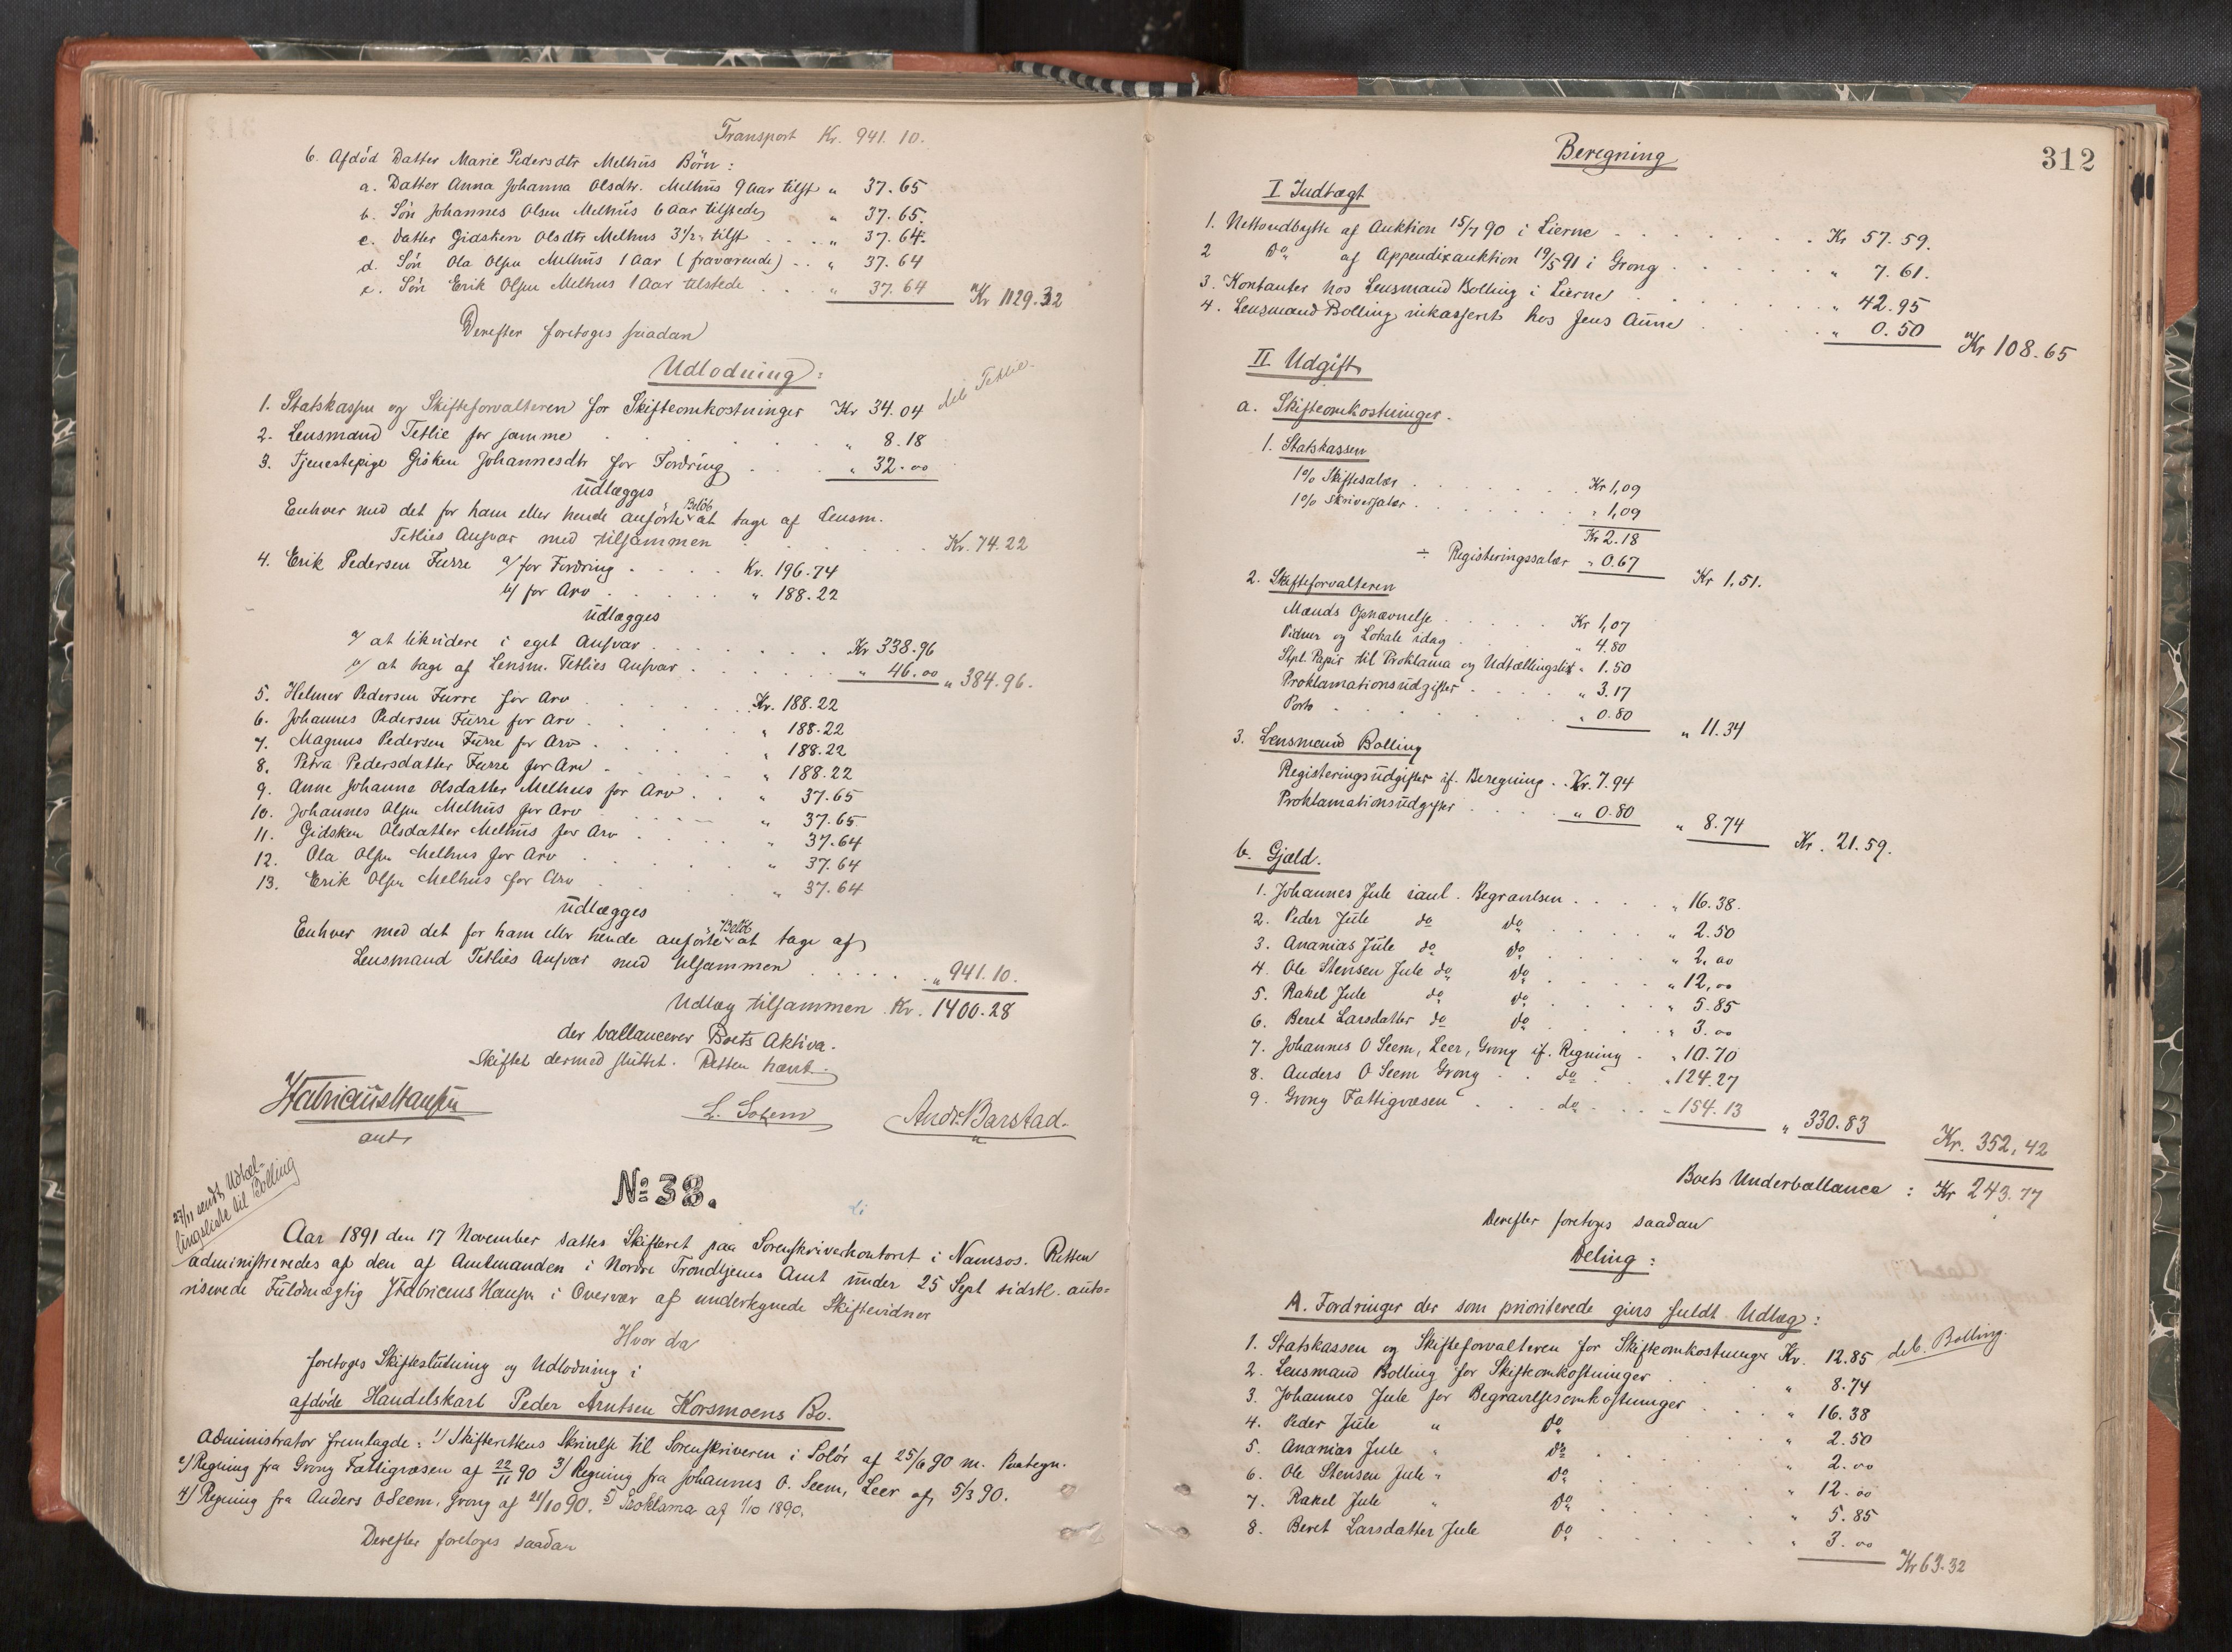 Transport Kr. 941.10.
6. Afdöd Datter Marie Pedersdtr Melhus Börn:
a. Datter Anna Johanna Olsdtr. Melhus 9 Aar tilst " 37.65
b. Sön Johannes Olsen Melhus 6 Aar tilstede " 37.65.
c. Datter Gidsken Olsdtr Melhus 3½ " tilst . . . " 37.64.
d. Sön Ola Olsen Melhus 1 Aar (fraværende) . . " 37.64
e. Sön Erik Olsen Melhus 1 Aar tilstede . . . " 37.64 Kr 1129.32
Derefter foretoges saadan
Udlodning:
1. Statskassen og Skifteforvalteren for Skifteomkostninger Kr 34.04 deb Tetlie.
2. Lensmand Tetlie for samme . . . . . . " 8.18
3. Tjenestepige Gisken Johannesdtr for Fordring . . . " 32.00
Udlægges
Enhver med det for ham eller hende anförte Belöb at tage af Lensm.
Tetlies Ansvar med tilsammen . . . . . . Kr. 74.22
4. Erik Pedersen Furre a/ for Fordring . . . . Kr. 196.74
b/ for Arv . . . . . " 188.22
udlægges
a/ at likvidere i eget Ansvar . . . . . . . Kr 338.96
b/ at tage af Lensm. Tetlies Ansvar . . . . . " 46.00 " 384.96.
5. Helmer Pedersen Furre for Arv . . . . . Kr. 188.22
6. Johannes Pedersen Furre for Arv . . . . . " 188.22
7. Magnus Pedersen Furre for Arv . . . . . " 188.22
8. Petra Pedersdatter Furre for Arv . . . . " 188.22
9. Anne Johanne Olsdatter Melhus for Arv . . " 37.65
10. Johannes Olsen Melhus for Arv . . . . " 37.65
11. Gidsken Olsdatter Melhus for Arv . . . . " 37.64
12. Ola Olsen Melhus for Arv . . . . . " 37.64
13. Erik Olsen Melhus for Arv . . . . . " 37.64
Udlægges
Enhver med det for ham eller hende anförte Belöb at tage af
Lensmand Tetlies Ansvar med tilsammen . . . . . " 941.10.
Udlæg tilsammen Kr. 1400.28
der ballancerer Boets Aktiva.
Skiftet dermed sluttet. Retten hævet.
JFabriciusHansen
aut.
L. Solem
Andr. Barstad.
27/11 sendt Udtællingsliste til Bolling
No 38.
Li
Aar 1891 den 17 November sattes Skifteret paa Sorenskriverkontoret i Namsos. Retten
administreredes af den af Amtmanden i Nordre Trondhjems Amt under 25 Sept sidstl. auto-
riserede Fuldmægtig JFabricius Hansen i Overvær af undertegnede Skiftevidner
Hvor da
foretoges Skifteslutning og Udlodning i
afdöde Handelskarl Peder Arntsen Korsmoens Bo.
Administrator fremlagde: 1/ Skifterettens Skrivelse til Sorenskriveren i Solör af 25/6 90 m. Paategn.
2/ Regning fra Grong Fattigvæsen af 22/11 90 3/ Regning fra Johannes O. Seem, Leer af 5/3 90.
4/ Regning fra Anders O Seem, Grong af 21/10 90. 5/ Proklama af 1/10 1890.
Derefter foretoges saadan
312
Beregning
I Indtægt
1. Nettoudbytte af Auktion 15/7 90 i Lierne . . . . . . . Kr 57.59.
2 Do af Appendixauktion 19/5 91 i Grong . . . . . " 7.61.
3. Kontanter hos Lensmand Bolling i Lierne . . . . . . " 42.95
4. Lensmand Bolling inkasseret hos Jens Aune . . . . . " 0.50 Kr 108.65
II. Udgift
a. Skifteomkostninger.
1. Statskassen
1% Skiftesalær . . . . . . Kr 1,09
1% Skriversalær . . . . . . " 1,09
Kr 2.18
÷ Registeringssalær " 0.67 Kr 1.51.
2. Skifteforvalteren
Mænds Opnævnelse . . . . . Kr 1,07
Vidner og Lokale idag . . . . " 4.80
Stpl. Papir til Proklama og Udtællingsliste " 1.50
Proklamationsudgifter . . . . " 3.17
Porto . . . . . . . " 0.80 " 11.34
3. Lensmand Bolling
Registeringsudgifter if. Beregning . . Kr. 7.94
Proklamationsudgifter . . . . " 0.80 " 8.74 Kr. 21.59.
b. Gjæld.
1. Johannes Jule iaul. Begravelsen . . . . " 16.38.
2. Peder Jule do do . . . . " 2.50
3. Ananias Jule do do . . . . " 2.00
4. Ole Stensen Jule do do . . . . " 12,00
5. Rakel Jule do do . . . . " 5.85
6. Beret Larsdatter do do . . . . " 3.00
7. Johannes O Seem, Leer, Grong if. Regning . " 10.70
8. Anders O Seem Grong . . do . . " 124.27
9. Grong Fattigvæsen . . . do . . . " 154.13 " 330.83 Kr. 352,42
Boets Underballance : Kr 243.77
Derefter foretoges saadan
Deling:
A. Fordringer der som prioriterede gives fuldt Udlæg:
1. Statskassen og Skifteforvalteren for Skifteomkostninger Kr. 12.85 deb. Bolling.
2. Lensmand Bolling for Skifteomkostninger . . . " 8.74
3. Johannes Jule for Begravelsesomkostninger . . . " 16.38
4. Peder Jule " Do . . . . . " 2.50
5. Ananias Jule " Do . . . . . " 2.00
6. Ole Stensen Jule " Do . . . . . " 12.00
7. Rakel Jule " Do . . . . . " 5.85
8. Beret Larsdatter Jule Do . . . . . " 3.00 Kr 63.32